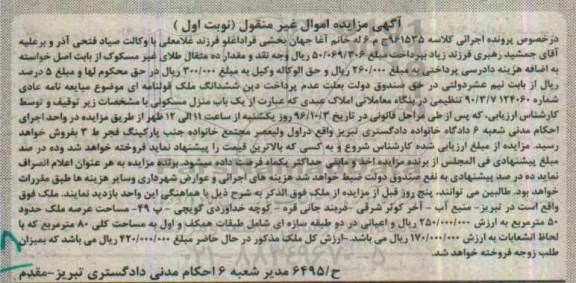 آگهی مزایده اموال غیر منقول (نوبت اول )
درخصوص پرونده اجرائی کلاسه ۹۶۱۵۳۵ج م ۶ له خانم آغا جهان بخشی قراداغلو فرزند غلامعلی با وکالت صیاد فتحی آذر و برعلیه
آقای جمشید رهبری فرزند زیاد بپرداخت مبلغ ۵۰/۰۶۹/۳۰۶ ریال وجه نقد و مقدار ده مثقال طلای غیر مسکوک از بابت اصل خواسته
به اضافه هزینه دادرسی پرداختی به مبلغ ۲۶۰/۰۰۰ ریال و حق الوکاله وکیل به مبلغ ۳۰۰/۰۰۰ ریال در حق محکوم لها و مبلغ ۵ درصد
ریال از بابت نیم عشردولتی در حق صندوق دولت بعلت عدم پرداخت دین ششدانگ ملک قولنامه ای موضوع مبایعه نامه عادی
شماره ۱۲۴۰۶۰ ۹۰/۳/۷ تنظیمی در بنگاه معاملاتی املاک عبدی که عبارت از یک باب منزل مسکونی با مشخصات زیر توقیف و توسط
کارشناس ارزیابی،که پس از طی مراحل قانونی در تاریخ ۹۶/۱۰/۳ روز یکشنبه از ساعت ۱۱ الی ۱۲ ظهر از طریق مزایده در واحد اجرای
احکام مدنی شعبه ۶ دادگاه خانواده دادگستری تبریز واقع دراول ولیعصر مجتمع خانواده جنب پارکینگ فجر ط ۳ بفروش خواهد
رسید. مزایده از مبلغ ارزیابی شده کارشناس شروع و به کسی که بالاترین قیمت را پیشنهاد نماید فروخته خواهد شد وده در صد
مبلغ پیشنهادی فی المجلس از برنده مزایده اخذ و مابقی حداکثر یکماه فرصت داده میشود. برنده مزایده به هر عنوان اعلام انصراف
نماید ده در صد پیشنهادی به نفع صندوق دولت ضبط خواهد شد هزینه های اجرائی و عوارض شهرداری وسایر هزینه ها طبق مقررات
خواهد بود. طالبین می توانند، پنج روز قبل از مزایده از ملک فوق الذکر به شرح ذیل با هماهنگی این واحد بازدید نمایند. ملک فوق
واقع است در تبریز- منبع آب - آخر کوثر شرقی -نرمند جانی قره - کوچه خداوردی گویجی - پ ۴۹- مساحت عرصه ملک حدود
۵۰ مترمربع به ارزش ۲۵۰/۰۰۰/۰۰۰ ریال و اعیانی در دو طبقه سازه ای شامل طبقات همکف و اول به مساحت کلی ۸۰ مترمربع که با
لحاظ انشعابات به ارزش ۱۷۰/۰۰۰/۰۰۰ ریال می باشد -ارزش کل ملک مذکور در حال حاضر مبلغ ۴۲۰/۰۰۰/۰۰۰ ریال می باشد که بمیزان
طلب زوجه فروخته خواهد شد.
۰۲۱-۸۸۳۴۹۶۷۰-۵
ح/۶۴۹۵ مدیر شعبه ۶ احکام مدنی دادگستری تبریز-مقدم